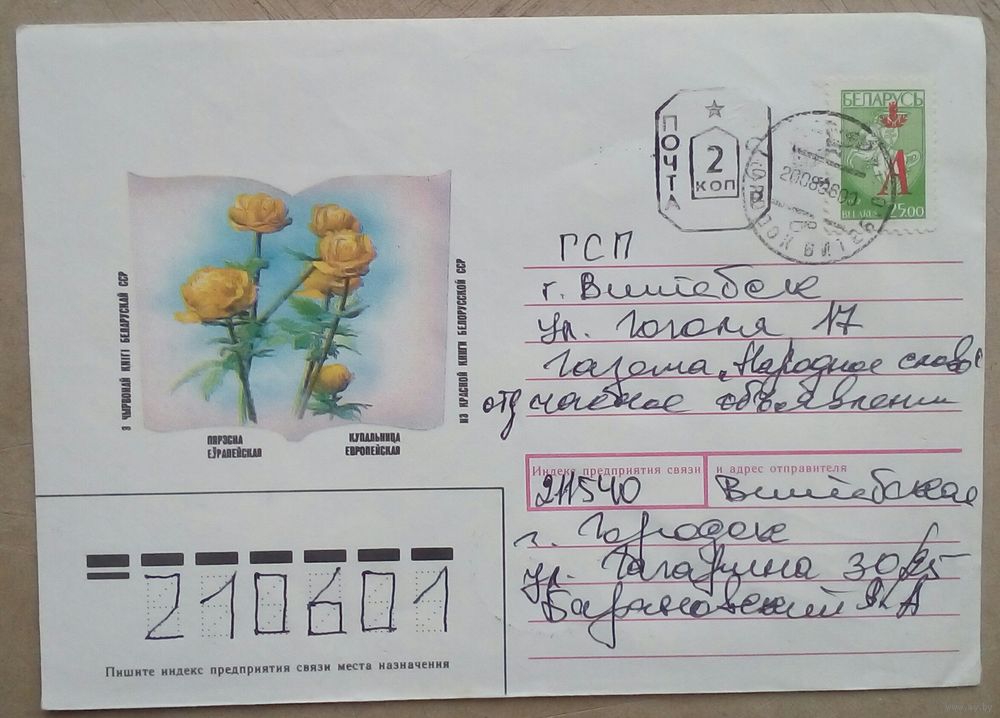 З ЧЫРВОНАЙ КНІГІ БЕЛАРУСКАЙ ССР
ПЯРЭСНА
ЕЎРАПЕЙСКАЯ
КУПАЛЬНИЦА
ЕВРОПЕЙСКАЯ
ИЗ КРАСНОЙ КНИГИ БЕЛОРУССКОЙ ССР
ПОЧТА
2
КОП
БЕЛАРУСЬ
А
BELARUS 25.00
ГСП
г. Витебск
ул. Гоголя 17
Газета „Народное слово"
отд частное объявлении
Индекс предприятия связи и адрес отправителя
211540 Витебская
г. Городок
ул. Гагарина 30
Барановский
210601
Пишите индекс предприятия связи места назначения
www.ay.by